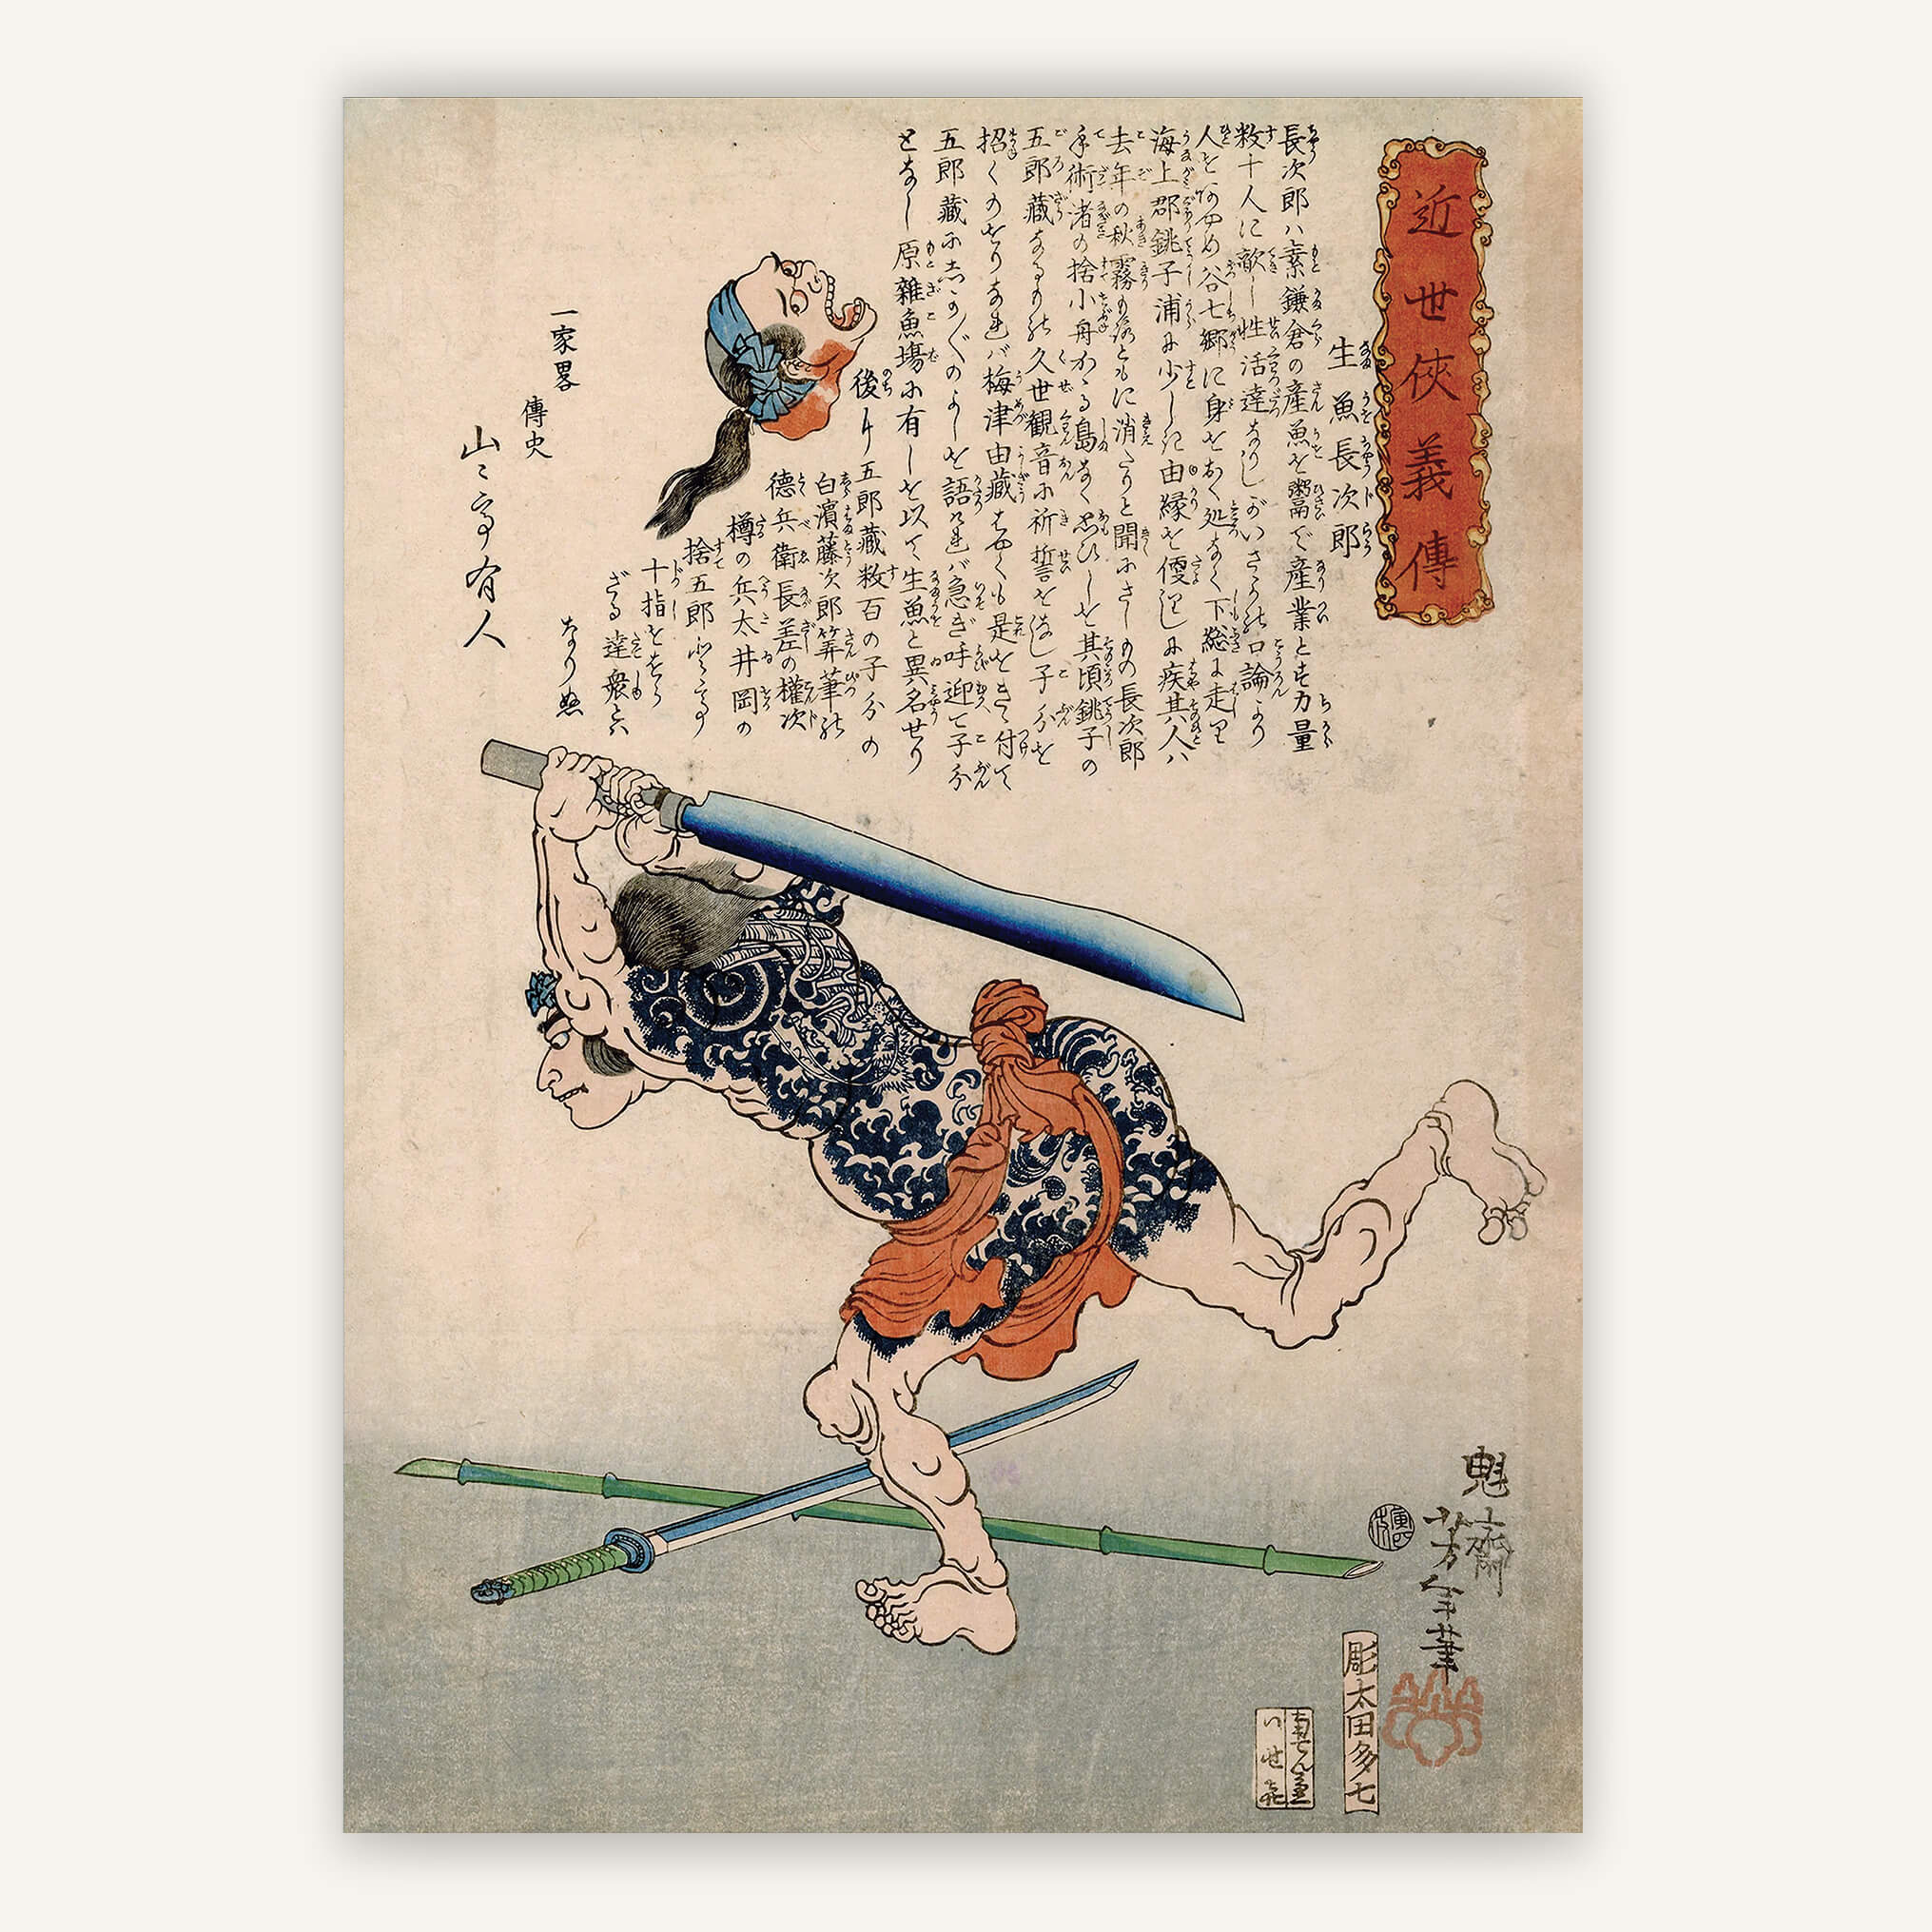 近世侠義傳
生魚長次郎
長次郎ハ素鎌倉の産魚を鬻で産業とし力量
数十人に敵し性活達なりしがいさゝの口論より
人をあやめ谷七郷に身をおく処なく下総に走り
海上郡銚子浦に少しに由縁を便りに疾其人ハ
去年の秋霧もろともに消たりと聞にさしもの長次郎
手術渚の捨小舟かゝる島なく思ひしを其頃銚子の
五郎藏なるもの久世観音に祈誓を込し子分を
招くのをりなれバ梅津由藏をもて是をきゝ付て
五郎藏に志か〴〵のよしを語れバ急ぎ呼迎て子分
となし原雑魚場に有しを以て生魚と異名せり
後り五郎藏数百の子分の
白濱藤次郎笄筆の
德兵衛長差の權次
樽の兵太井岡の
捨五郎
十指をもら
ざる達衆と
なりぬ
一家畧
傳史
山々亭有人
魁斎芳年筆
彫太田多七
いせ